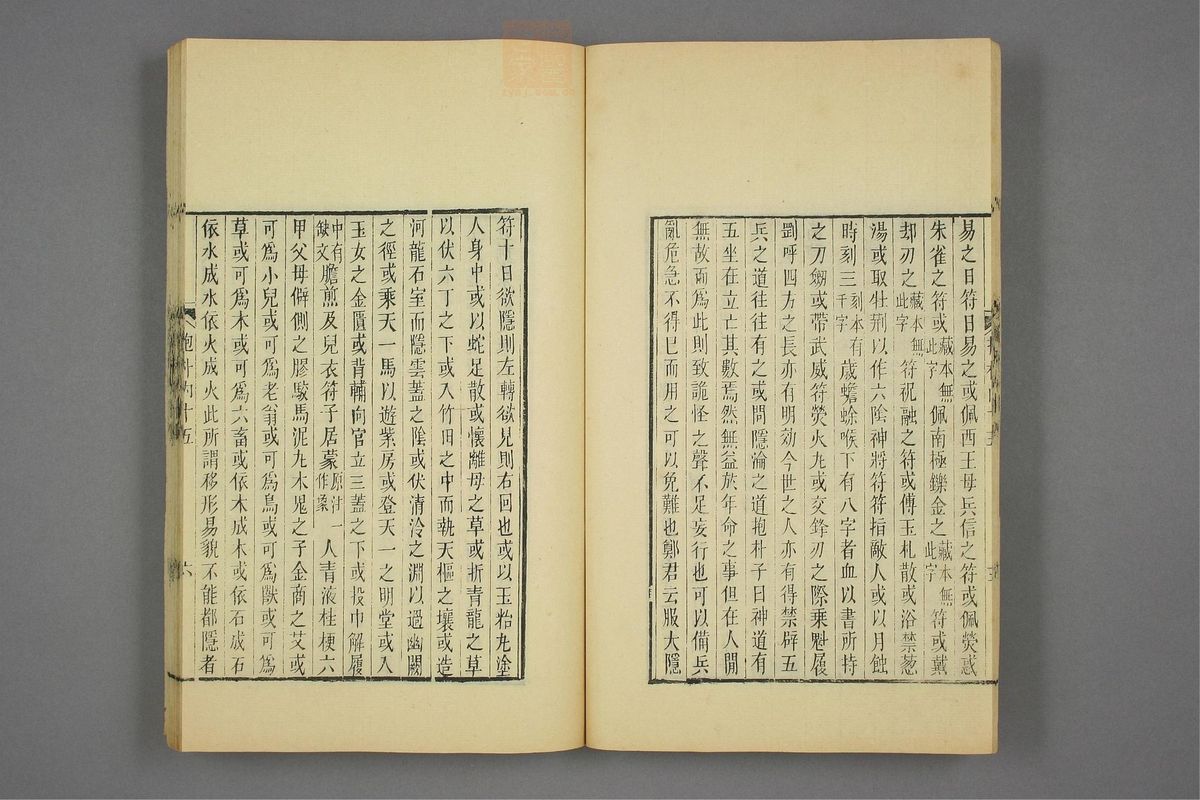 易之日符日易之或佩西王母兵信之符或佩熒惑
朱雀之符或藏本無此字佩南極鑠金之藏本無此字符或戴
却刃之藏本無此字符祝融之符或傅玉札散或浴禁葱
湯或取牡荆以作六陰神將符符指敵人或以月蝕
時刻三刻本有千字歲蟾蜍喉下有八字者血以書所持
之刀劒或帶武威符熒火丸或交鋒刃之際乘魁履
罡呼四方之長亦有明効今世之人亦有得禁辟五
兵之道往往有之或問隱淪之道抱朴子曰神道有
五坐在立亡其數焉然無益於年命之事但在人閒
無故而爲此則致詭怪之聲不足妄行也可以備兵
亂危急不得已而用之可以免難也鄭君云服大隱
符十日欲隱則左轉欲見則右回也或以玉粭丸塗
人身中或以蛇足散或懷離母之草或折青龍之草
以伏六丁之下或入竹田之中而執天樞之壤或造
河龍石室而隱雲蓋之陰或伏清泠之淵以過幽闕
之徑或乘天一馬以遊紫房或登天一之明堂或入
玉女之金匱或背輔向官立三蓋之下或投巾解履
中有缺文膽煎及兒衣符子居蒙原注作象一人青液桂梗六
甲父母僻側之膠駮馬泥丸木鬼之子金商之艾或
可爲小兒或可爲老翁或可爲鳥或可爲獸或可爲
草或可爲木或可爲六畜或依木成木或依石成石
依水成水依火成火此所謂移形易貌不能都隱者
抱朴内十五
六